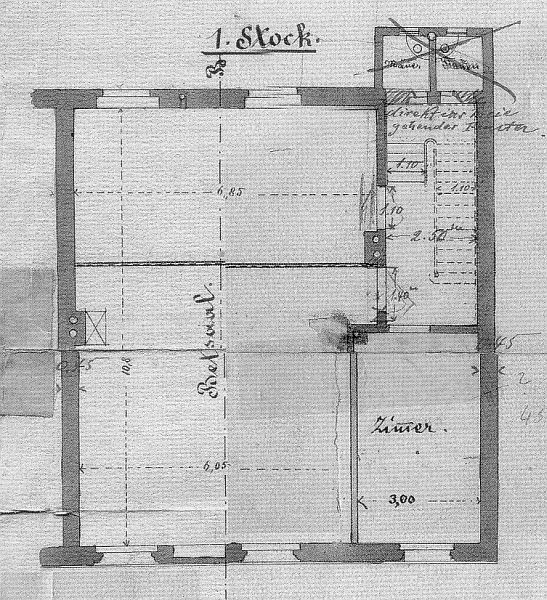 1. Stock.
Männer Frauen
direkt ins Freie
gehendes Fenster.
1.10
1.10
6,85
1.10
2.50
1.40
Betsaal.
0,45
0,45
10,8
Zimer.
6,05
3,00
2
45